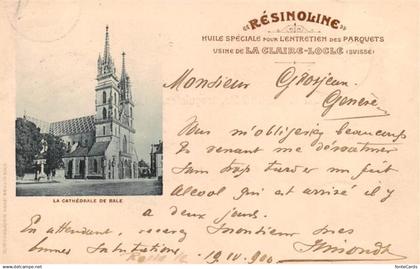 « RÉSINOLINE »
HUILE SPÉCIALE POUR L'ENTRETIEN DES PARQUETS
USINE DE LA CLAIRE-LOCLE (SUISSE)
Monsieur Grosjean
Genève
Vous m'obligeriez beaucoup
en venant me dévoiturer
sans trop tarder un fût
Alcool qui est arrivé il y
a deux jours.
En attendant, recevez Monsieur mes
bonnes salutations
19 IV 900
LA CATHÉDRALE DE BALE